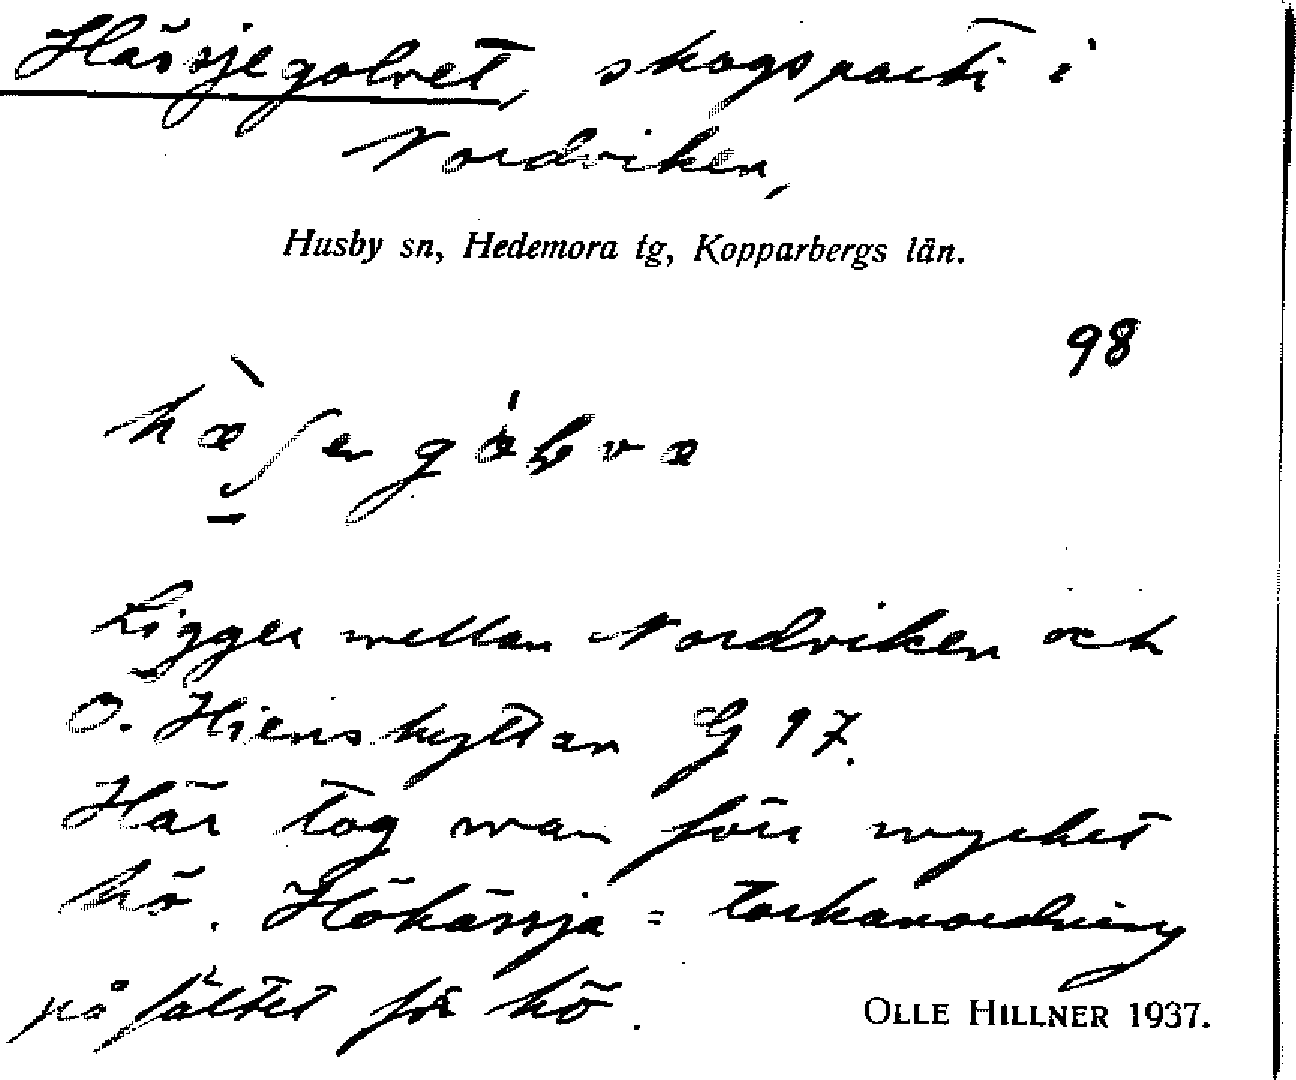 Hässjegolvet, skogsparti i
Nordviken,
Husby sn, Hedemora tg, Kopparbergs län.
98
Ligger mellan Nordviken och
O. Hienshyttan G 17.
Här tog man förr mycket
hö. Höhässja = torkanordning
på fältet för hö.
OLLE HILLNER 1937.